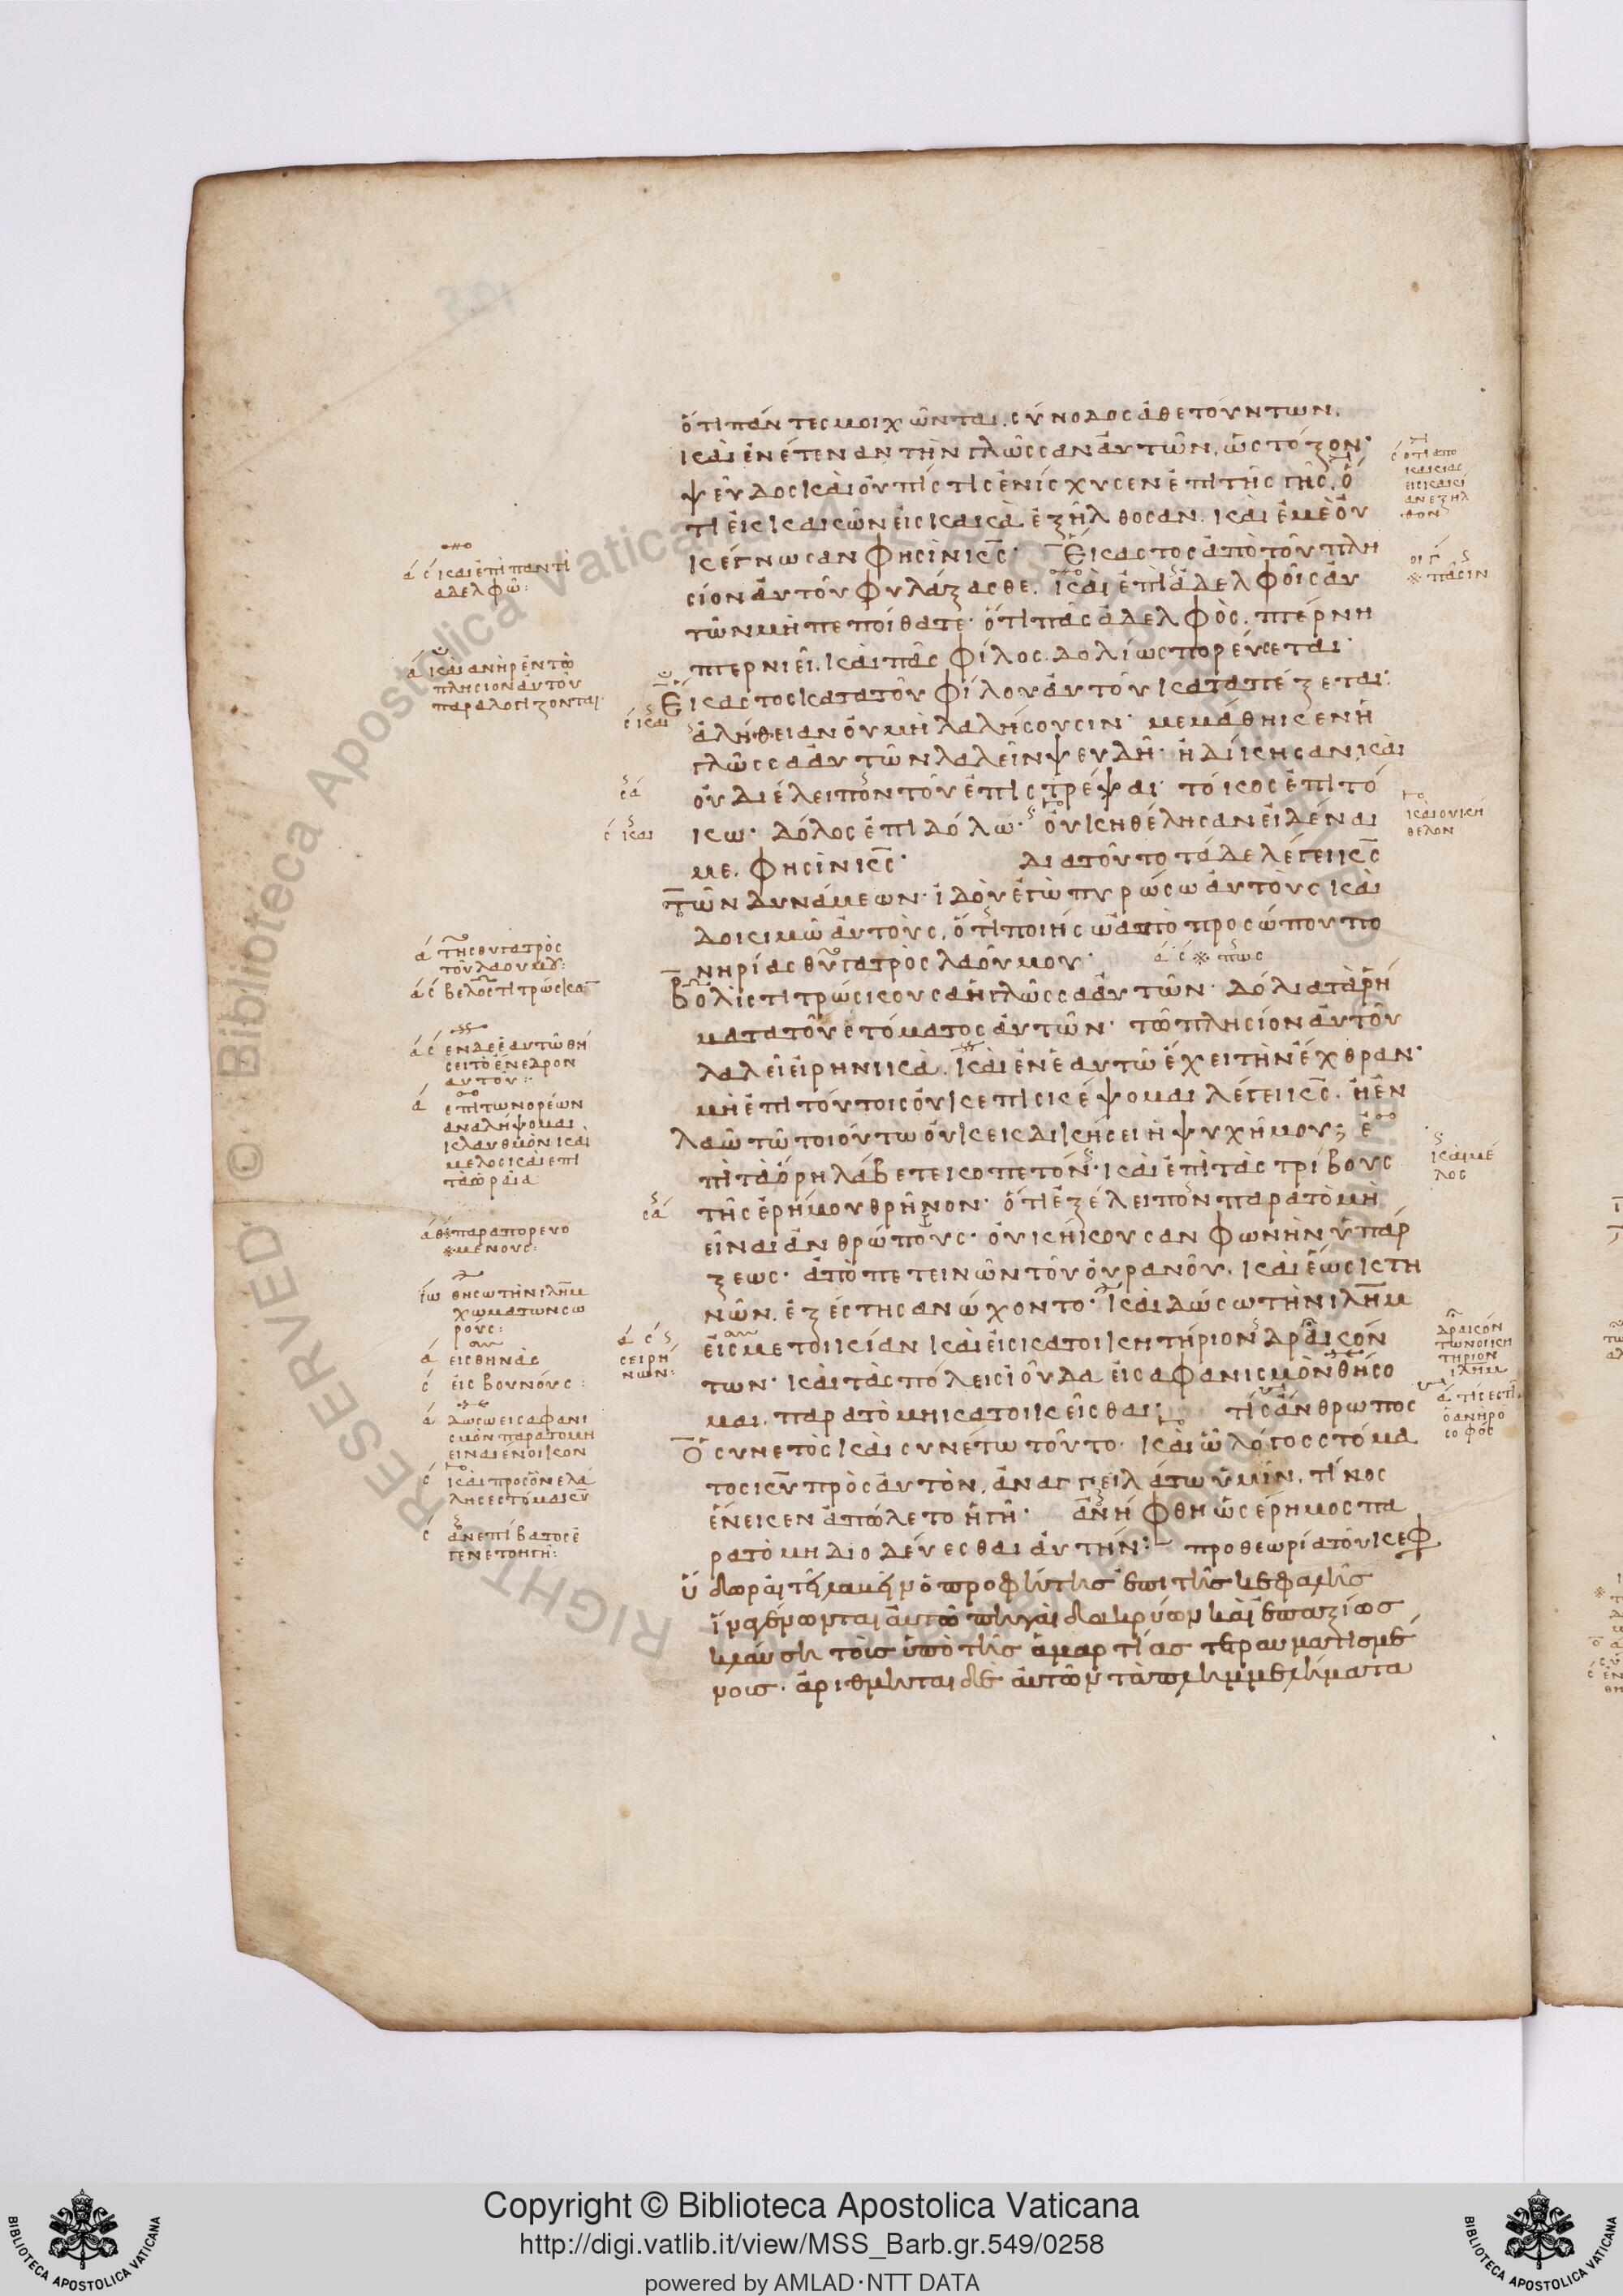 ὅτι πάντες μοιχῶνται. σύνοδος ἀθετούντων.
καὶ ἐνέτειναν τὴν γλῶσσαν αὐτῶν, ὡς τόξον·
ψεῦδος καὶ οὐ πίστις ἐνίσχυσεν ἐπὶ τῆς γῆς. ὅ
τι ἐκ κακῶν εἰς κακὰ ἐξήλθοσαν. καὶ ἐμὲ οὐ
κ ἔγνωσαν φησὶν κ̅ς̅· Ἕκαστος ἀπὸ τοῦ πλη
σίον αὐτοῦ φυλάξασθε. καὶ ἐπὶ ἀδελφοῖς αὐ
τῶν μὴ πεποίθατε· ὅτι πᾶς ἀδελφὸς. πτέρνη
πτερνιεῖ. καὶ πᾶς φίλος δολίως πορεύσεται·
Ἕκαστος κατὰ τοῦ φίλου αὐτοῦ καταπέξεται·
ἀλήθειαν οὐ μὴ λαλήσουσιν· μεμάθηκεν ἡ
γλῶσσα αὐτῶν λαλεῖν ψευδῆ· ἠδίκησαν, καὶ
οὐ διέλειπον τοῦ ἐπιστρέψαι· τόκος ἐπὶ τό
κω· δόλος ἐπὶ δόλω· οὐκ ἠθέλησαν εἰδέναι
με. φησὶν κ̅ς̅· διατοῦτο τάδε λέγει κ̅ς̅
τῶν δυνάμεων· ἰδοὺ ἐγὼ πυρώσω αὐτοὺς καὶ
δοκιμῶ αὐτοὺς. ὅτι ποιήσω ἀπὸ προσώπου πο
νηρίας θυγατρὸς λαοῦ μου· ά ς ※ πῶς
Βολὶς τιτρώσκουσα ἡ γλῶσσα αὐτῶν· δόλια τὰ ῥή
ματα τοῦ στόματος αὐτῶν· τῶ πλησίον αὐτοῦ
λαλεῖ εἰρηνικὰ. καὶ ἐν ἑαυτῶ ἔχει τὴν ἔχθραν·
μὴ ἐπὶ τούτοις οὐκ ἐπισκέψομαι λέγει κ̅ς̅. ἢ ἐν
λαῶ τῶ τοιούτω οὐκ ἐκδικήσει ἡ ψυχή μου; ἐ
πὶ τὰ ὄρη λάβετε κοπετόν· καὶ ἐπὶ τὰς τρίβους
τῆς ἐρήμου θρῆνον· ὅτι ἐξέλειπον παρὰ τὸ μὴ
εἶναι ἀνθρώπους· οὐκ ἤκουσαν φωνὴν ὑπάρ
ξεως· ἀπὸ πετεινῶν τοῦ οὐρανοῦ. καὶ ἕως κτη
νῶν. ἐξέστησαν ὤχοντο· καὶ δώσω τὴν ιλη̅μ
εἰς μετοικίαν καὶ εἰς κατοικητήριον δρακόν
των· καὶ τὰς πόλεις ἰούδα εἰς αφανισμὸν θήσο
μαι. παρὰ τὸ μὴ κατοικεῖσθαι· τίς ἄνθρωπος
Ὁ συνετὸς καὶ συνέτω τοῦτο· καὶ ὧ λόγος στόμα
τος κ̅υ̅ πρὸς αὐτὸν. ἀναγγειλάτω ὑμῖν. τίνος
ἕνεκεν ἀπώλετο ἡ γῆ· ἀνήφθη ὡς ἔρημος πα
ρὰ τὸ μὴ διοδεύεσθαι αὐτήν· προθεωρία τοῦ κεφ
ὕδωρ αἰτήσαμενος ὁ προφήτης ἐπὶ τῆς κεφαλῆς
ἵνα γένωνται αὐτῶ πηγαὶ δακρύων καὶ ἐπαξίως
κλαύση τοῖς ὑπὸ τῆς ἁμαρτίας τετραυματισμέ
νοις. ἀριθμεῖται δὲ αὐτῶν τὰ πλημμελήματα
ά ς καὶ ἐπὶ παντὶ
αδελφῶ:
ά καὶ ανὴρ ἐν τῶ
πλησιον αὐτοῦ
παραλογίζονται·
ς και
ς ά
ς και
ά τῆς θυγατρὸς
τοῦ λαου μου:
ά ς βελος τιτρῶσκο̅
ά ς εν δε ἑαυτῶ θή
σει τὸ ἔνεδρον
αυτοῦ:
ά επι των ορέων
αναλήψομαι
κλαυθμὸν καὶ
μελος και επι
τὰ ωραῖα
ς ά
ά θ παραπορευο
※ μένους:
ιω θησω τὴν ιλη̅μ
χωματων σω
ρούς:
ά εις θηνὰς
ς εἰς βουνούς:
ά δωσω εις αφανι
σμὸν παρα το μη
ειναι ένοικον
ς καὶ προς ὃν ελά
λησε στόμα κ̅υ̅
ς ἀνεπίβατος ἐ
γενετο η γῆ:
ά ς
σειρή
νων:
ς ὅτι απο
κακίας
εις κακί
αν εξηλ
θον
οι γ
※ πᾶσιν
και ουκ ή
θελον
και μέ
λος
δρακόν
των οικη
τήριον
ιλη̅μ
ά τίς εστι̅
ὁ ανὴρ ὁ
σοφός
Copyright © Biblioteca Apostolica Vaticana
http://digi.vatlib.it/view/MSS_Barb.gr.549/0258
powered by AMLAD·NTT DATA
BIBLIOTECA APOSTOLICA VATICANA
BIBLIOTECA APOSTOLICA VATICANA
Biblioteca Apostolica Vaticana ALL RIGHTS RESERVED ©